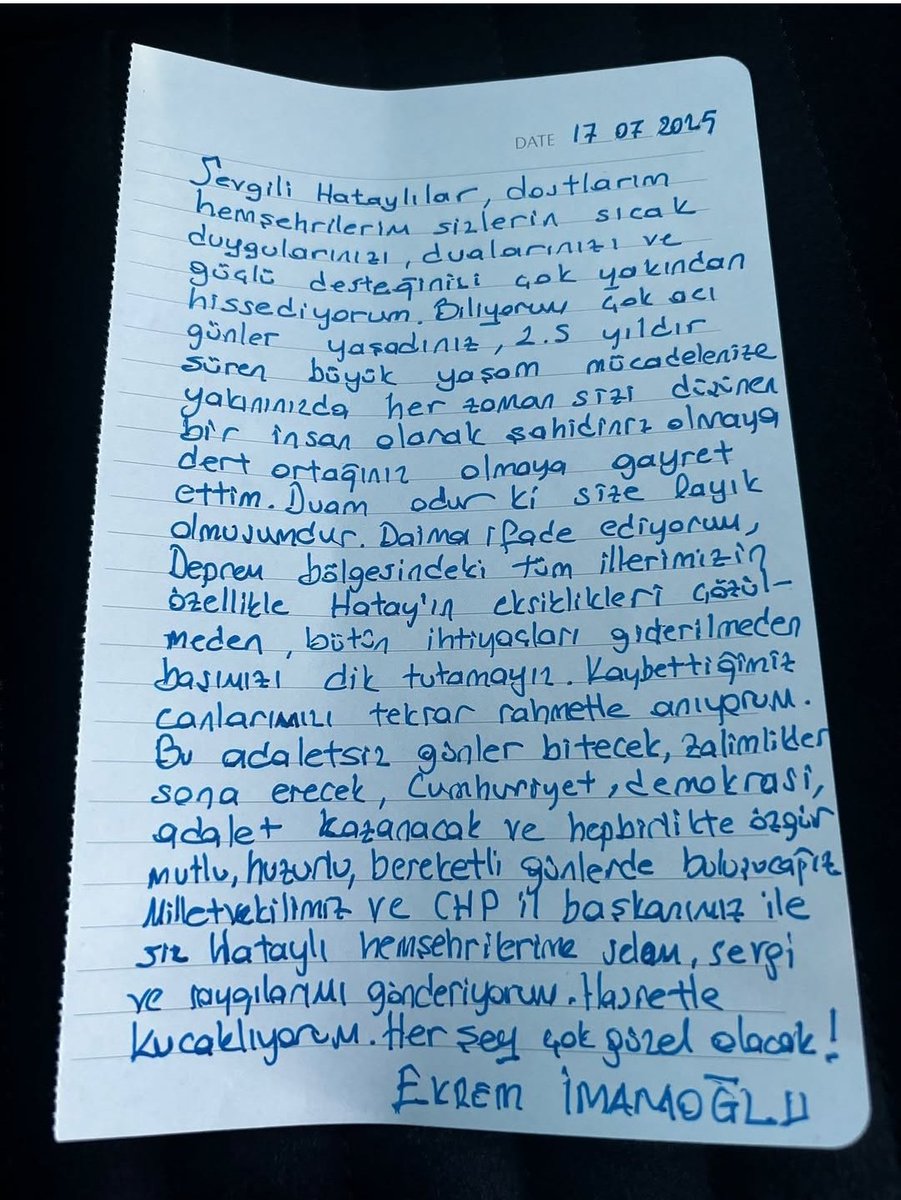 DATE 17 07 2025
Sevgili Hataylılar, dostlarım
hemşehrilerim sizlerin sıcak
duygularınızı, dualarınızı ve
güçlü desteğinizi çok yakından
hissediyorum. Biliyorum çok acı
günler yaşadınız, 2.5 yıldır
süren büyük yaşam mücadelenize
yakınınızda her zaman sizi düşünen
bir insan olarak şahidiniz olmaya
dert ortağınız olmaya gayret
ettim. Duam odur ki size layık
olmuşumdur. Daima ifade ediyorum,
Deprem bölgesindeki tüm illerimizin
özellikle Hatay'ın eksiklikleri çözül-
meden, bütün ihtiyaçları giderilmeden
başımızı dik tutamayız. Kaybettiğimiz
canlarımızı tekrar rahmetle anıyorum.
Bu adaletsiz günler bitecek, zalimlikler
sona erecek, Cumhuriyet, demokrasi,
adalet kazanacak ve hepbirlikte özgür
mutlu, huzurlu, bereketli günlerde buluşucağız
Milletvekilimiz ve CHP il başkanımız ile
siz Hataylı hemşehrilerime selam, sevgi
ve saygılarımı gönderiyorum. Hasretle
kucaklıyorum. Her şey çok güzel olacak!
EKREM İMAMOĞLU